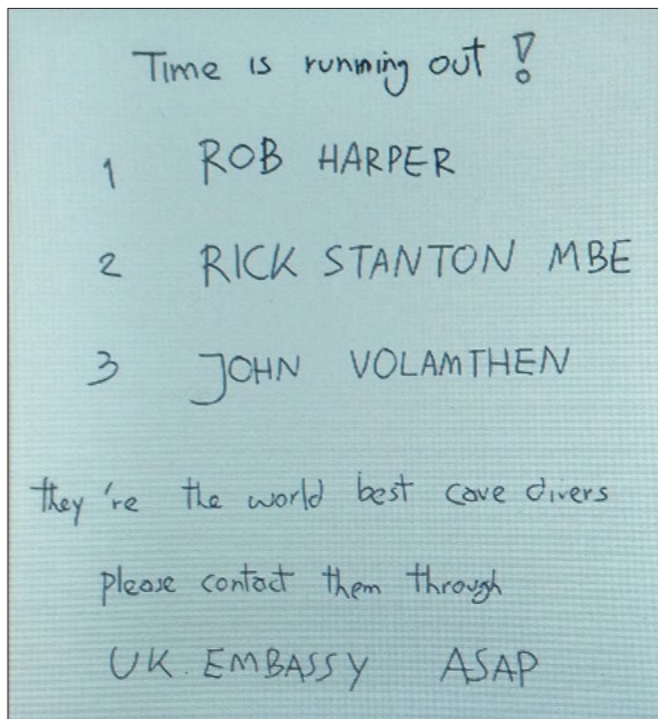 Time is running out !
1 ROB HARPER
2 RICK STANTON MBE
3 JOHN VOLAMTHEN
they're the world best cave divers
please contact them through
UK. EMBASSY ASAP